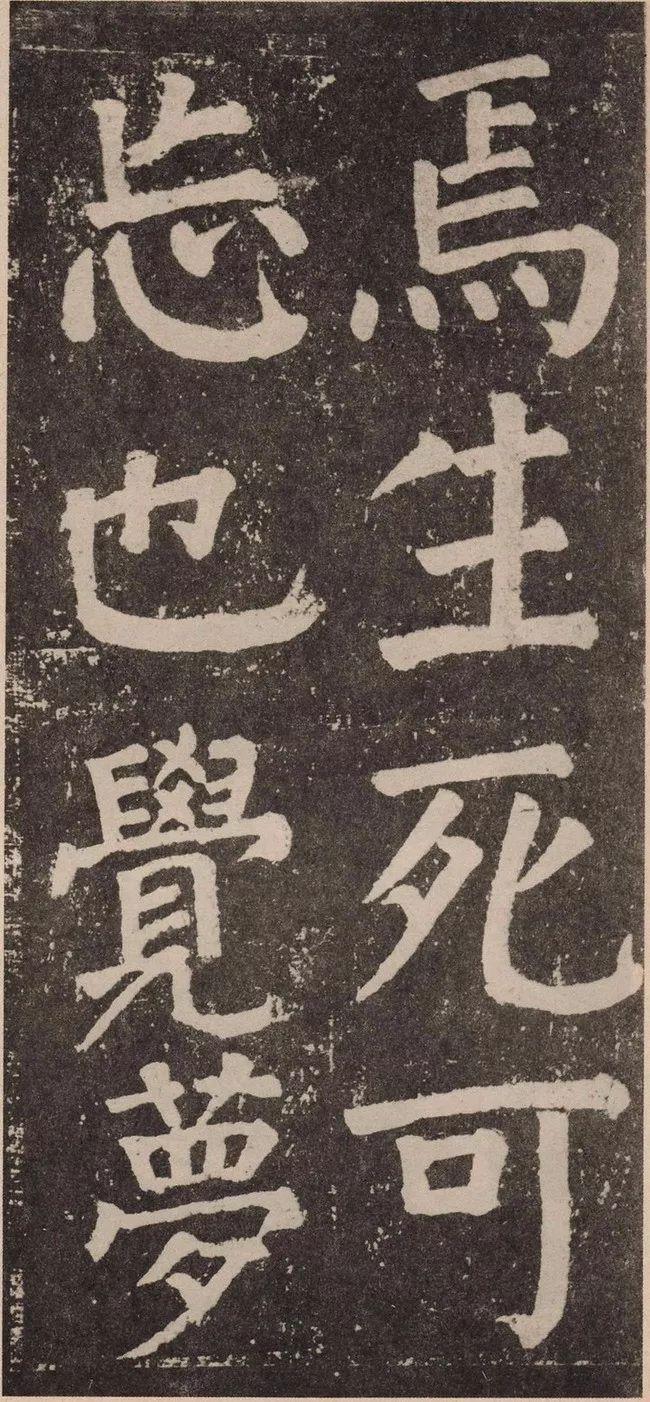 焉生死可
忘也覺夢